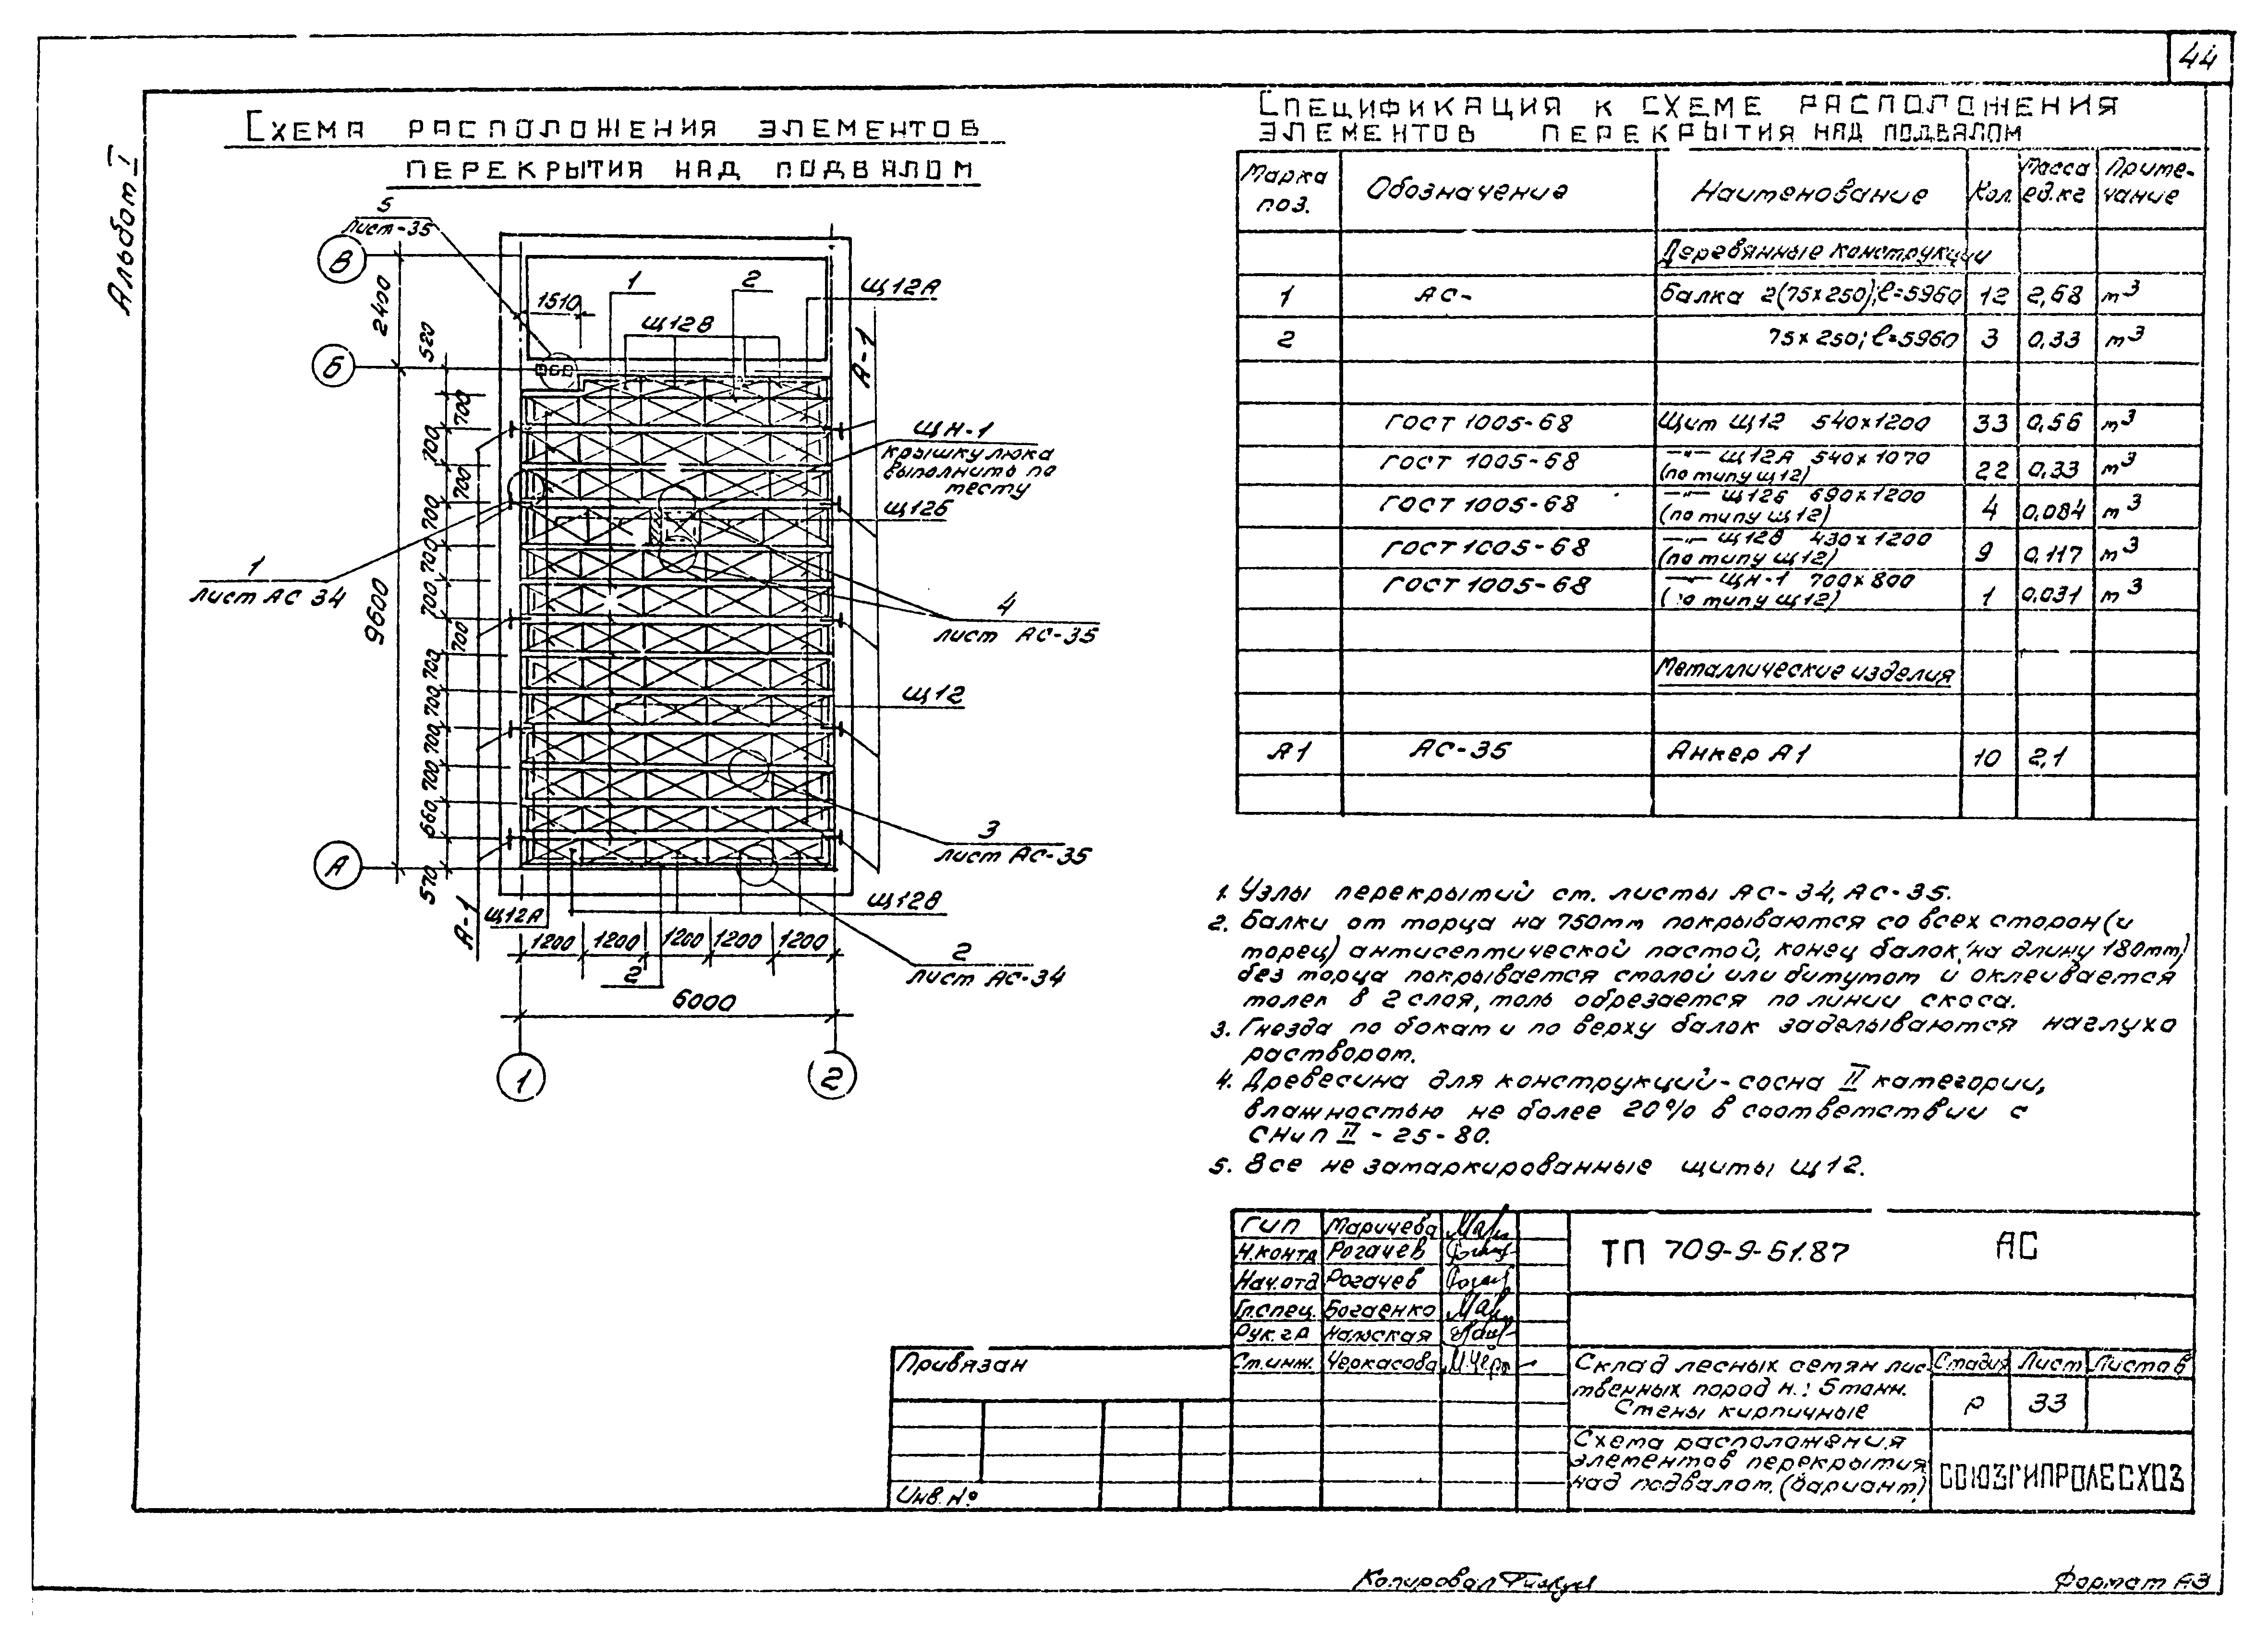 44
Альбом I
Схема расположения элементов
перекрытия над подвалом
5
лист-35
В
Б
А
2400
520
9600
700
700
700
700
700
700
700
700
700
700
700
660
570
1510
1
2
Щ12В
Щ12А
А-1
ЩН-1
крышку люка
выполнить по
месту
Щ12Б
1
лист АС 34
4
лист АС-35
Щ12
3
лист АС-35
Щ12В
2
лист АС-34
Щ12А
А-1
1200 1200 1200 1200 1200
2
6000
1
2
Спецификация к схеме расположения
элементов перекрытия над подвалом
Марка поз. Обозначение Наименование Кол. Масса ед.кг Примечание
Деревянные конструкции
1 АС- Балка 2(75х250); ℓ=5960 12 2,68 м3
2 75х250; ℓ=5960 3 0,33 м3
ГОСТ 1005-68 Щит Щ12 540х1200 33 0,56 м3
ГОСТ 1005-68 —"— Щ12А 540х1070 (по типу Щ12) 22 0,33 м3
ГОСТ 1005-68 —"— Щ12Б 690х1200 (по типу Щ12) 4 0,084 м3
ГОСТ 1005-68 —"— Щ12В 430х1200 (по типу Щ12) 9 0,117 м3
ГОСТ 1005-68 —"— ЩН-1 700х800 (по типу Щ12) 1 0,031 м3
Металлические изделия
А1 АС-35 Анкер А1 10 2,1
1. Узлы перекрытий см. листы АС-34, АС-35.
2. Балки от торца на 750мм покрываются со всех сторон (и
торец) антисептической пастой, конец балок (на длину 180мм)
без торца покрывается смолой или битумом и оклеивается
толем в 2 слоя, толь обрезается по линии скоса.
3. Гнезда по бокам и по верху балок заделываются наглухо
раствором.
4. Древесина для конструкций - сосна II категории,
влажностью не более 20% в соответствии с
СНиП II - 25 - 80.
5. Все не замаркированные щиты Щ12.
ГИП Маричева
Н.контр Рогачев
Нач.отд Рогачев
Гл.спец. Богаенко
Рук.гр
Ст.инж. Черкасова
ТП 709-9-61.87 АС
Привязан
Инв. №
Склад лесных семян лис-
твенных пород н.: 5 тонн.
Стены кирпичные
Стадия Лист Листов
Р 33
Схема расположения
элементов перекрытия
над подвалом. (Вариант)
СОЮЗГИПРОЛЕСХОЗ
Копировал
Формат А3